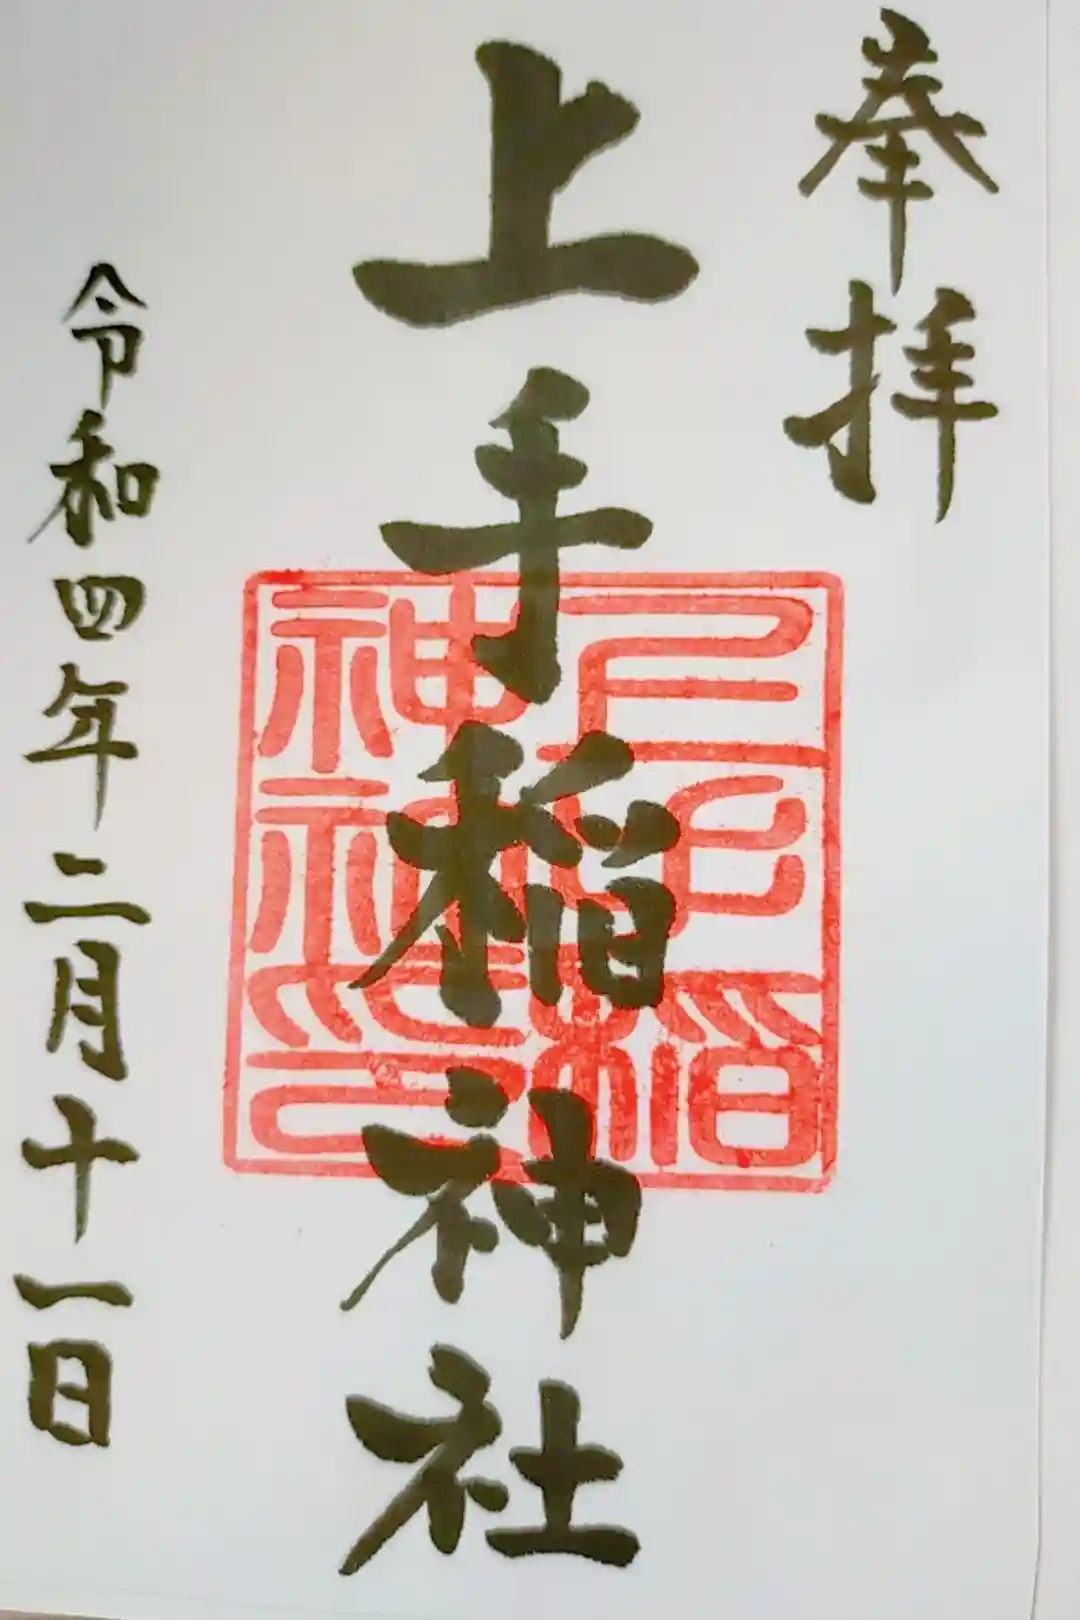 奉拝
上手稲神社
令和四年二月十一日
稲
神社印